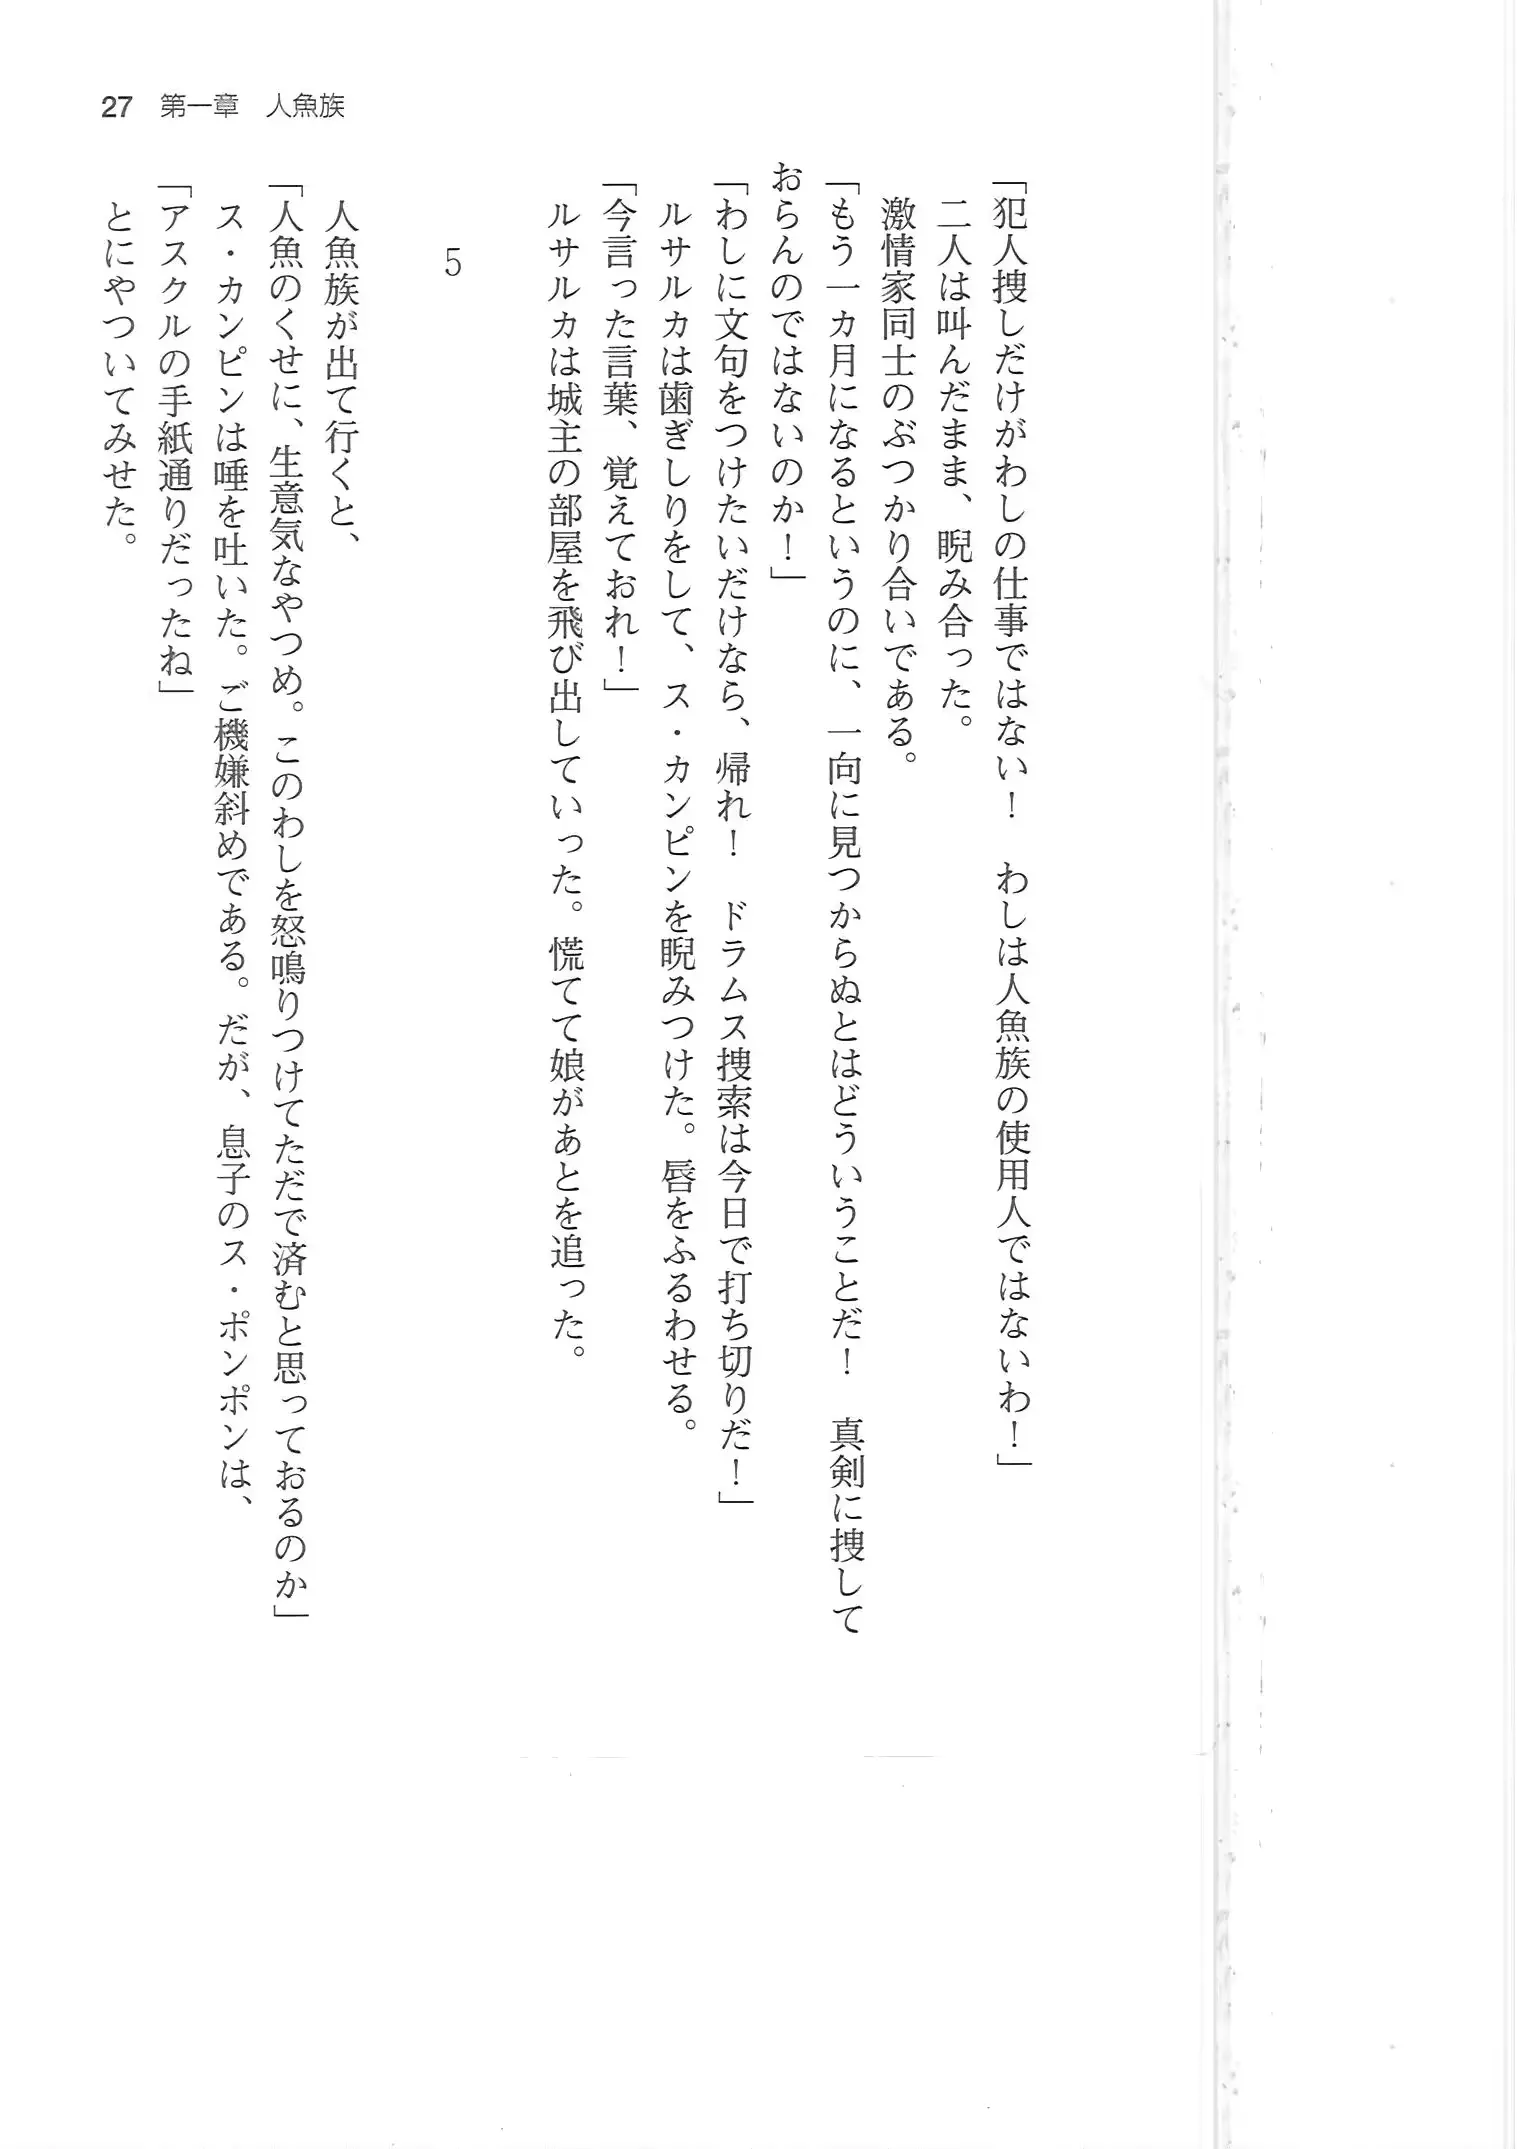 27 第一章 人魚族
「犯人捜しだけがわしの仕事ではない！　わしは人魚族の使用人ではないわ！」
二人は叫んだまま、睨み合った。
激情家同士のぶつかり合いである。
「もう一カ月になるというのに、一向に見つからぬとはどういうことだ！　真剣に捜して
おらんのではないのか！」
「わしに文句をつけたいだけなら、帰れ！　ドラムス捜索は今日で打ち切りだ！」
ルサルカは歯ぎしりをして、ス・カンピンを睨みつけた。唇をふるわせる。
「今言った言葉、覚えておれ！」
ルサルカは城主の部屋を飛び出していった。慌てて娘があとを追った。
5
人魚族が出て行くと、
「人魚のくせに、生意気なやつめ。このわしを怒鳴りつけてただで済むと思っておるのか」
ス・カンピンは唾を吐いた。ご機嫌斜めである。だが、息子のス・ポンポンは、
「アスクルの手紙通りだったね」
とにやついてみせた。